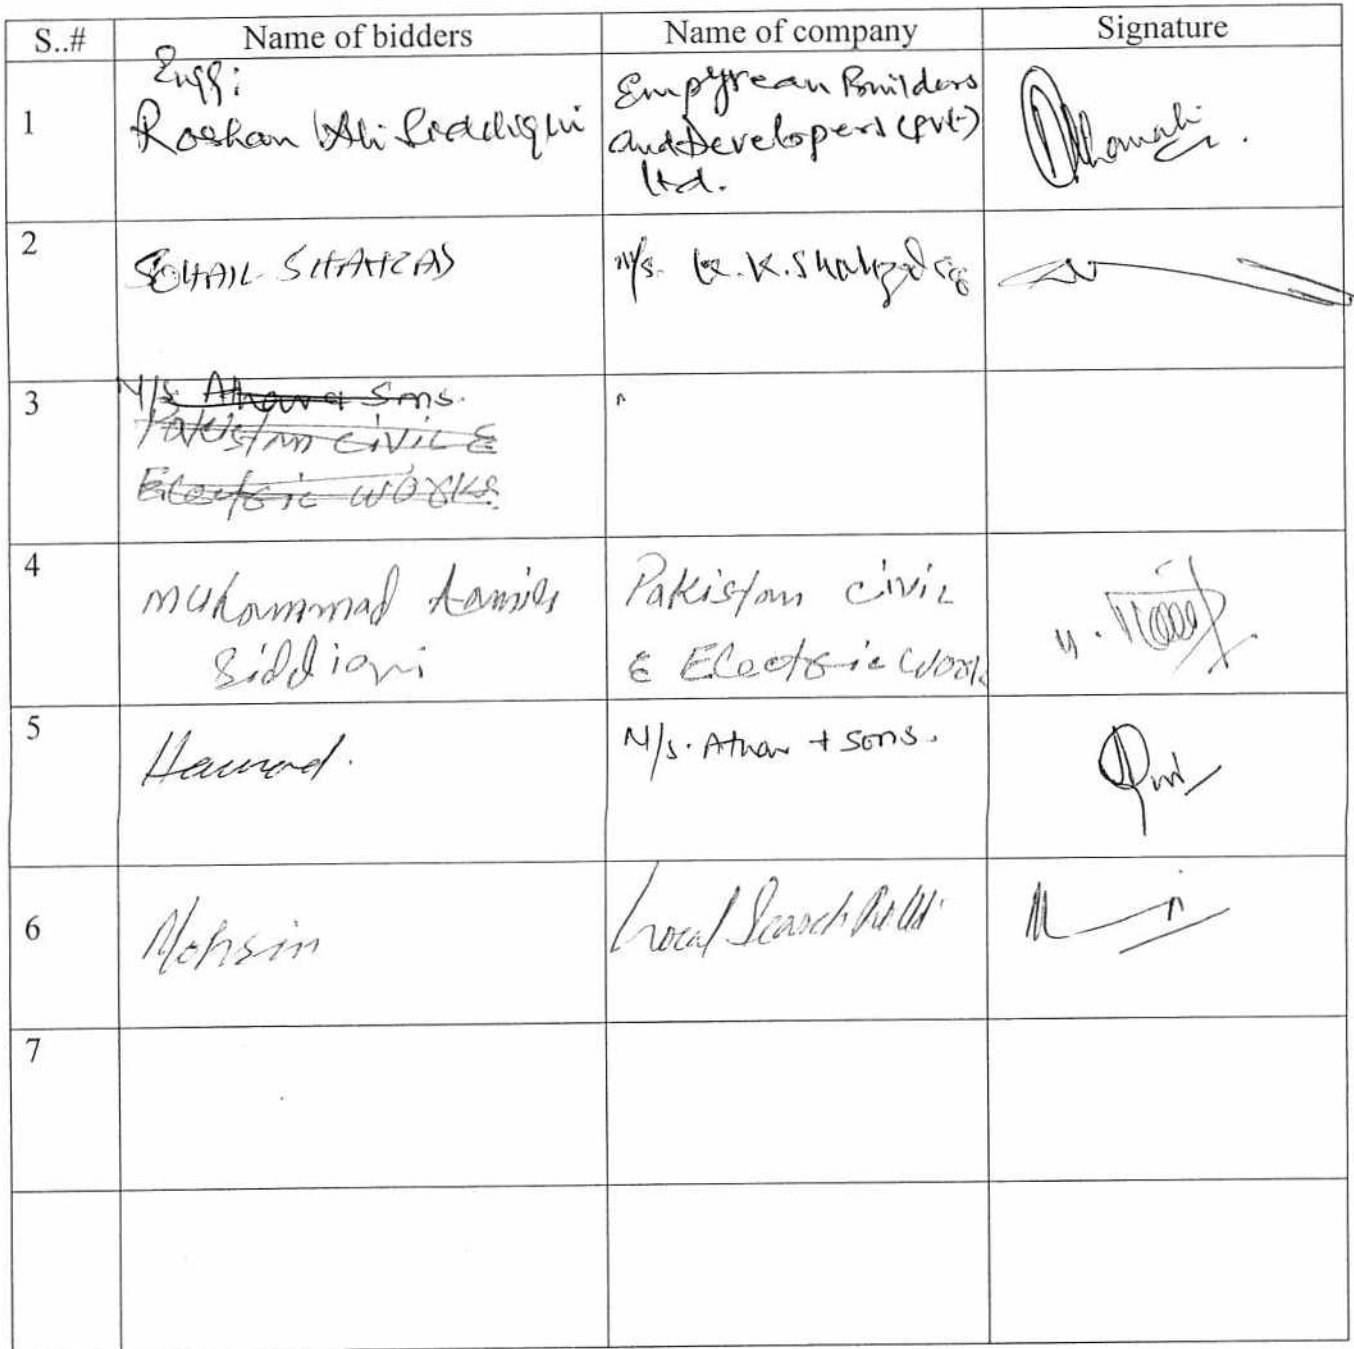 S..# Name of bidders Name of company Signature
1 Engg: Empyrean Builders
Roshan Ali Siddiqui and Developers (pvt)
Ltd.
2 SOHAIL SHAHZAD M/s. K.Shahzad
3 M/s. Athar & Sons.
Pakistan civil &
Electric works.
4 Muhammad Siddiqui Pakistan civil
& Electric work
5 Hammad. M/s. Athar + Sons.
6 Mohsin Local Search
7